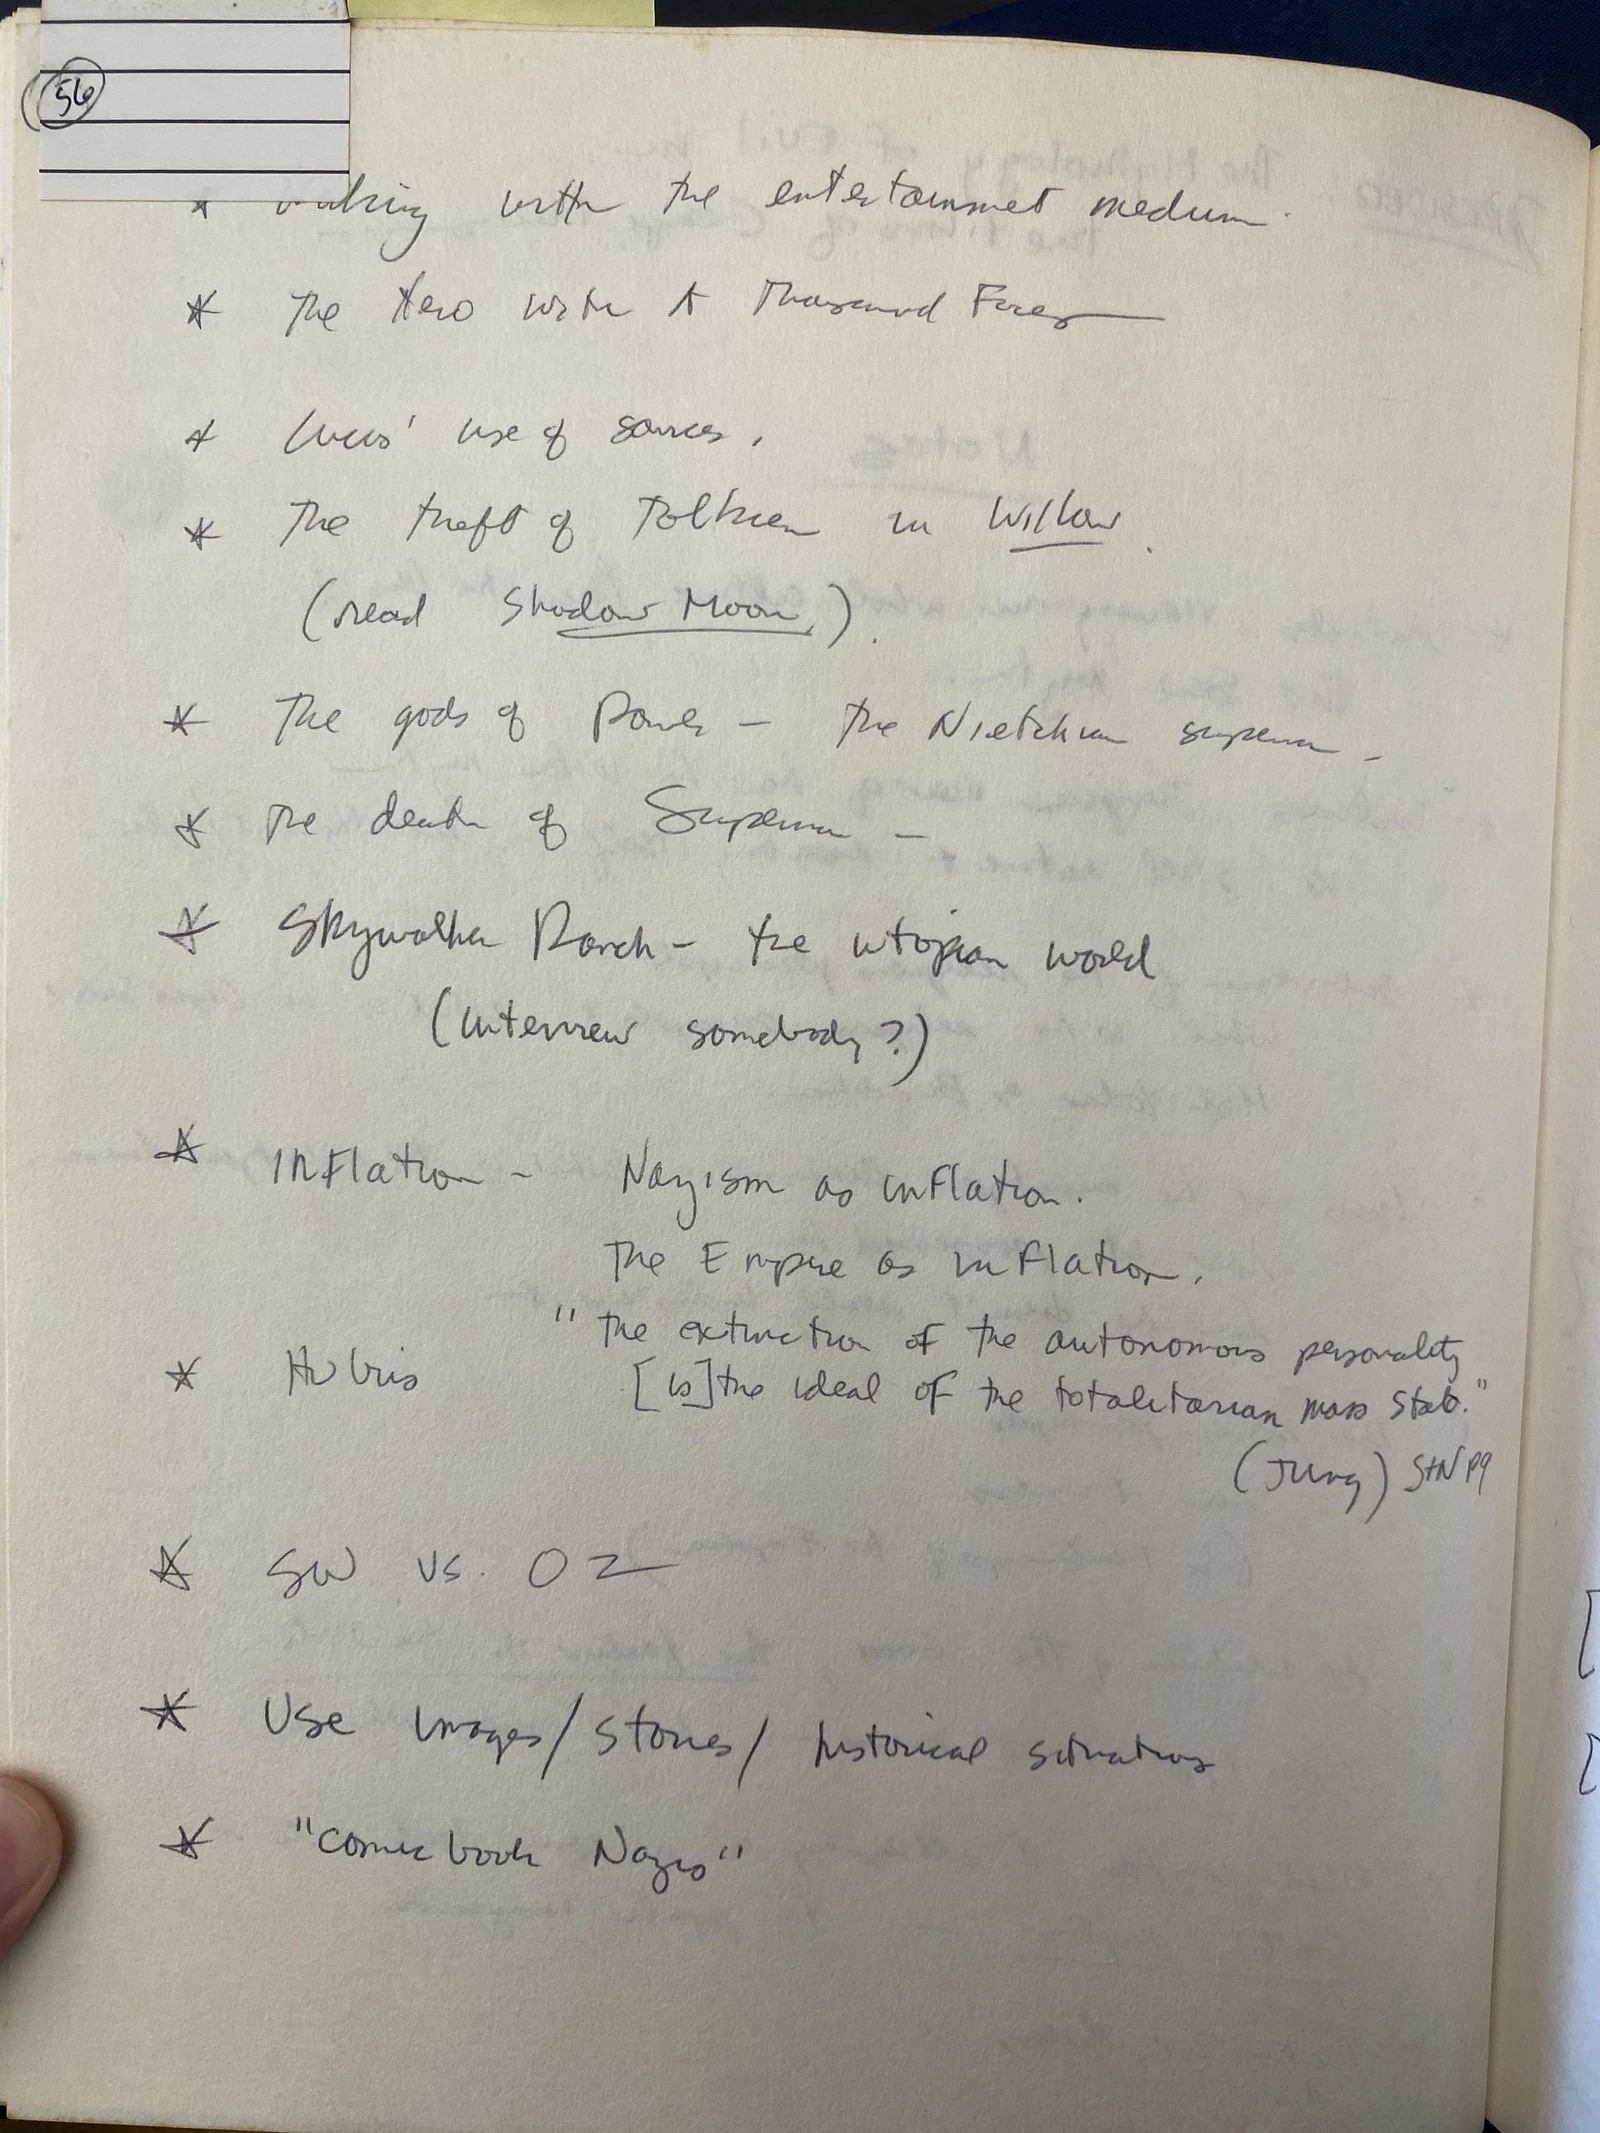 56
* working with the entertainmet medium.
* The Hero with A Thousand Faces
* Lucas' use of sources.
* The theft of Tolkien in Willow.
(read Shadow Moon).
* The gods of Power - the Nietchian superman -
* The death of Superman -
* Skywalker Ranch - the utopian world
(interview somebody?)
* Inflation - Nazism as inflation.
The Empire as inflation.
"the extinction of the autonomous personality
* Hubris [is] the ideal of the totalitarian mass state."
(Jung)
* SW vs. OZ
* Use images/stories/historical situations
* "comic book Nazis"